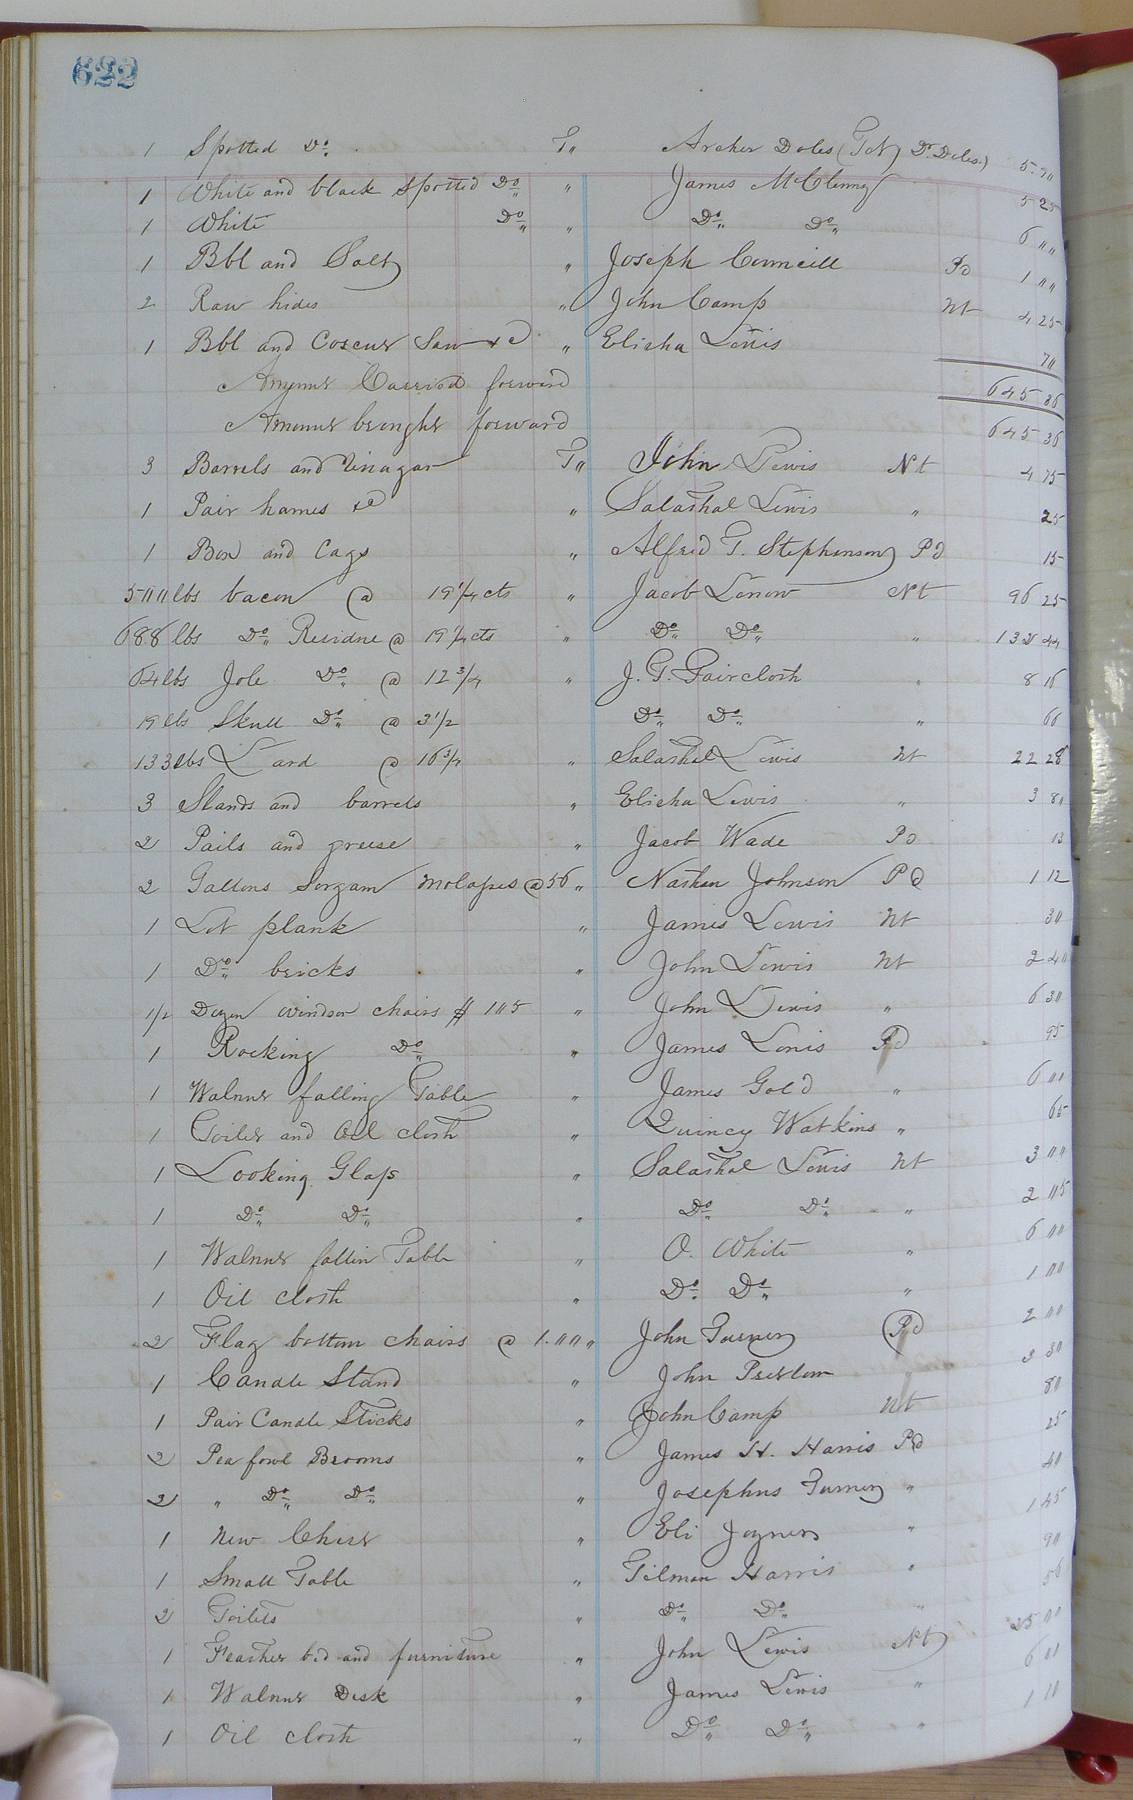 622
1 Spotted Do. T" Archer Doles (Tck Dr Doles) 5 70
1 White and black spotted Do " James McClenny 5 25
1 White Do " Do Do 6 00
1 Bbl and Salt " Joseph Councill Pd 1 00
2 Raw hides " John Camp Nt 4 25
1 Bbl and Saw &c " Elisha Lewis 70
Amount Carried forward 645 36
Amount brought forward 645 36
3 Barrels and Vinagar T" John Lewis Nt 4 75
1 Pair hames &c " Salathal Lewis " 25
1 Box and Cags " Alfred T. Stephenson Pd 15
500 lbs bacon @ 19 1/4 cts " Jacob Lenow Nt 96 25
688 lbs Do Residue @ 19 1/4 cts " Do Do " 132 44
64 lbs Jole Do @ 12 3/4 " J. T. Faircloth " 8 16
19 lbs Skull Do @ 3 1/2 Do Do " 66
133 lbs Lard @ 16 3/4 " Salathal Lewis Nt 22 28
3 Stands and barrels " Elisha Lewis " 3 80
2 Pails and grease " Jacob Wade Pd 13
2 Gallons Sorgam Molasses @ 56 " Nathan Johnson Pd 1 12
1 Lot plank " James Lewis Nt 30
1 Do bricks " John Lewis Nt 2 40
1/2 Dozen windsor chairs $ 105 " John Lewis " 6 30
1 Rocking Do " James Lewis Pd 95
1 Walnut falling Table " James Gold " 6 00
1 Toilet and Oil cloth " Quincy Watkins " 65
1 Looking Glass " Salathal Lewis Nt 3 00
1 Do Do " Do Do " 2 05
1 Walnut fallin Table " O. White " 6 00
1 Oil cloth " Do Do " 1 00
2 Flag bottom chairs @ 1.00 " John Turner Pd 2 00
1 Candle Stand " John Pretlow 3 30
1 Pair Candle Sticks " John Camp Nt 80
2 Pea fowl Brooms " James H. Harris Pd 25
2 " Do Do " Josephus Turner " 40
1 New Chest " Eli Joyner " 1 45
1 Small Table " Tilman Harris " 90
2 Toilets " Do Do " 56
1 Feather bed and furniture " John Lewis Nt 25 00
1 Walnut Desk " James Lewis " 6 00
1 Oil cloth " Do Do " 1 10